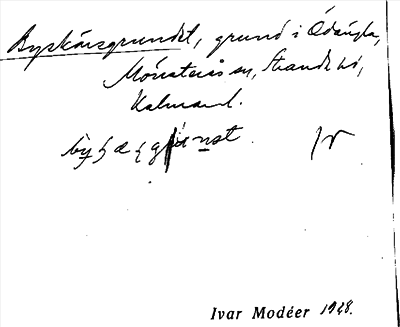 Byskärsgrundet, grund i Ödängla,
Mönsterås sn, Stranda hd,
Kalmar l.
Ivar Modéer 1948.